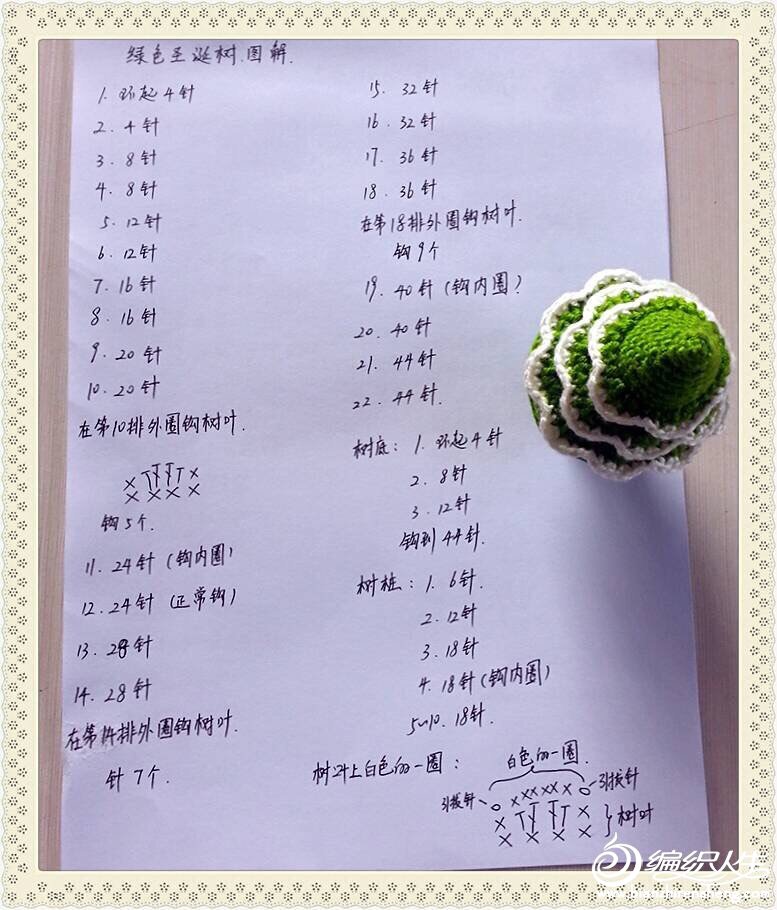 绿色圣诞树.图解.
1. 环起4针
2. 4针
3. 8针
4. 8针
5. 12针
6. 12针
7. 16针
8. 16针
9. 20针
10. 20针
在第10排外圈钩树叶.
钩5个.
11. 24针 (钩内圈)
12. 24针 (正常钩)
13. 28针
14. 28针
在第14排外圈钩树叶.
针7个.
15. 32针
16. 32针
17. 36针
18. 36针
在第18排外圈钩树叶.
钩9个
19. 40针 (钩内圈)
20. 40针
21. 44针
22. 44针.
树底: 1. 环起4针
2. 8针
3. 12针
钩到44针.
树桩: 1. 6针.
2. 12针
3. 18针
4. 18针 (钩内圈)
5~10. 18针.
树叶上白色的一圈:
白色的一圈
引拔针
引拔针
树叶
编织人生